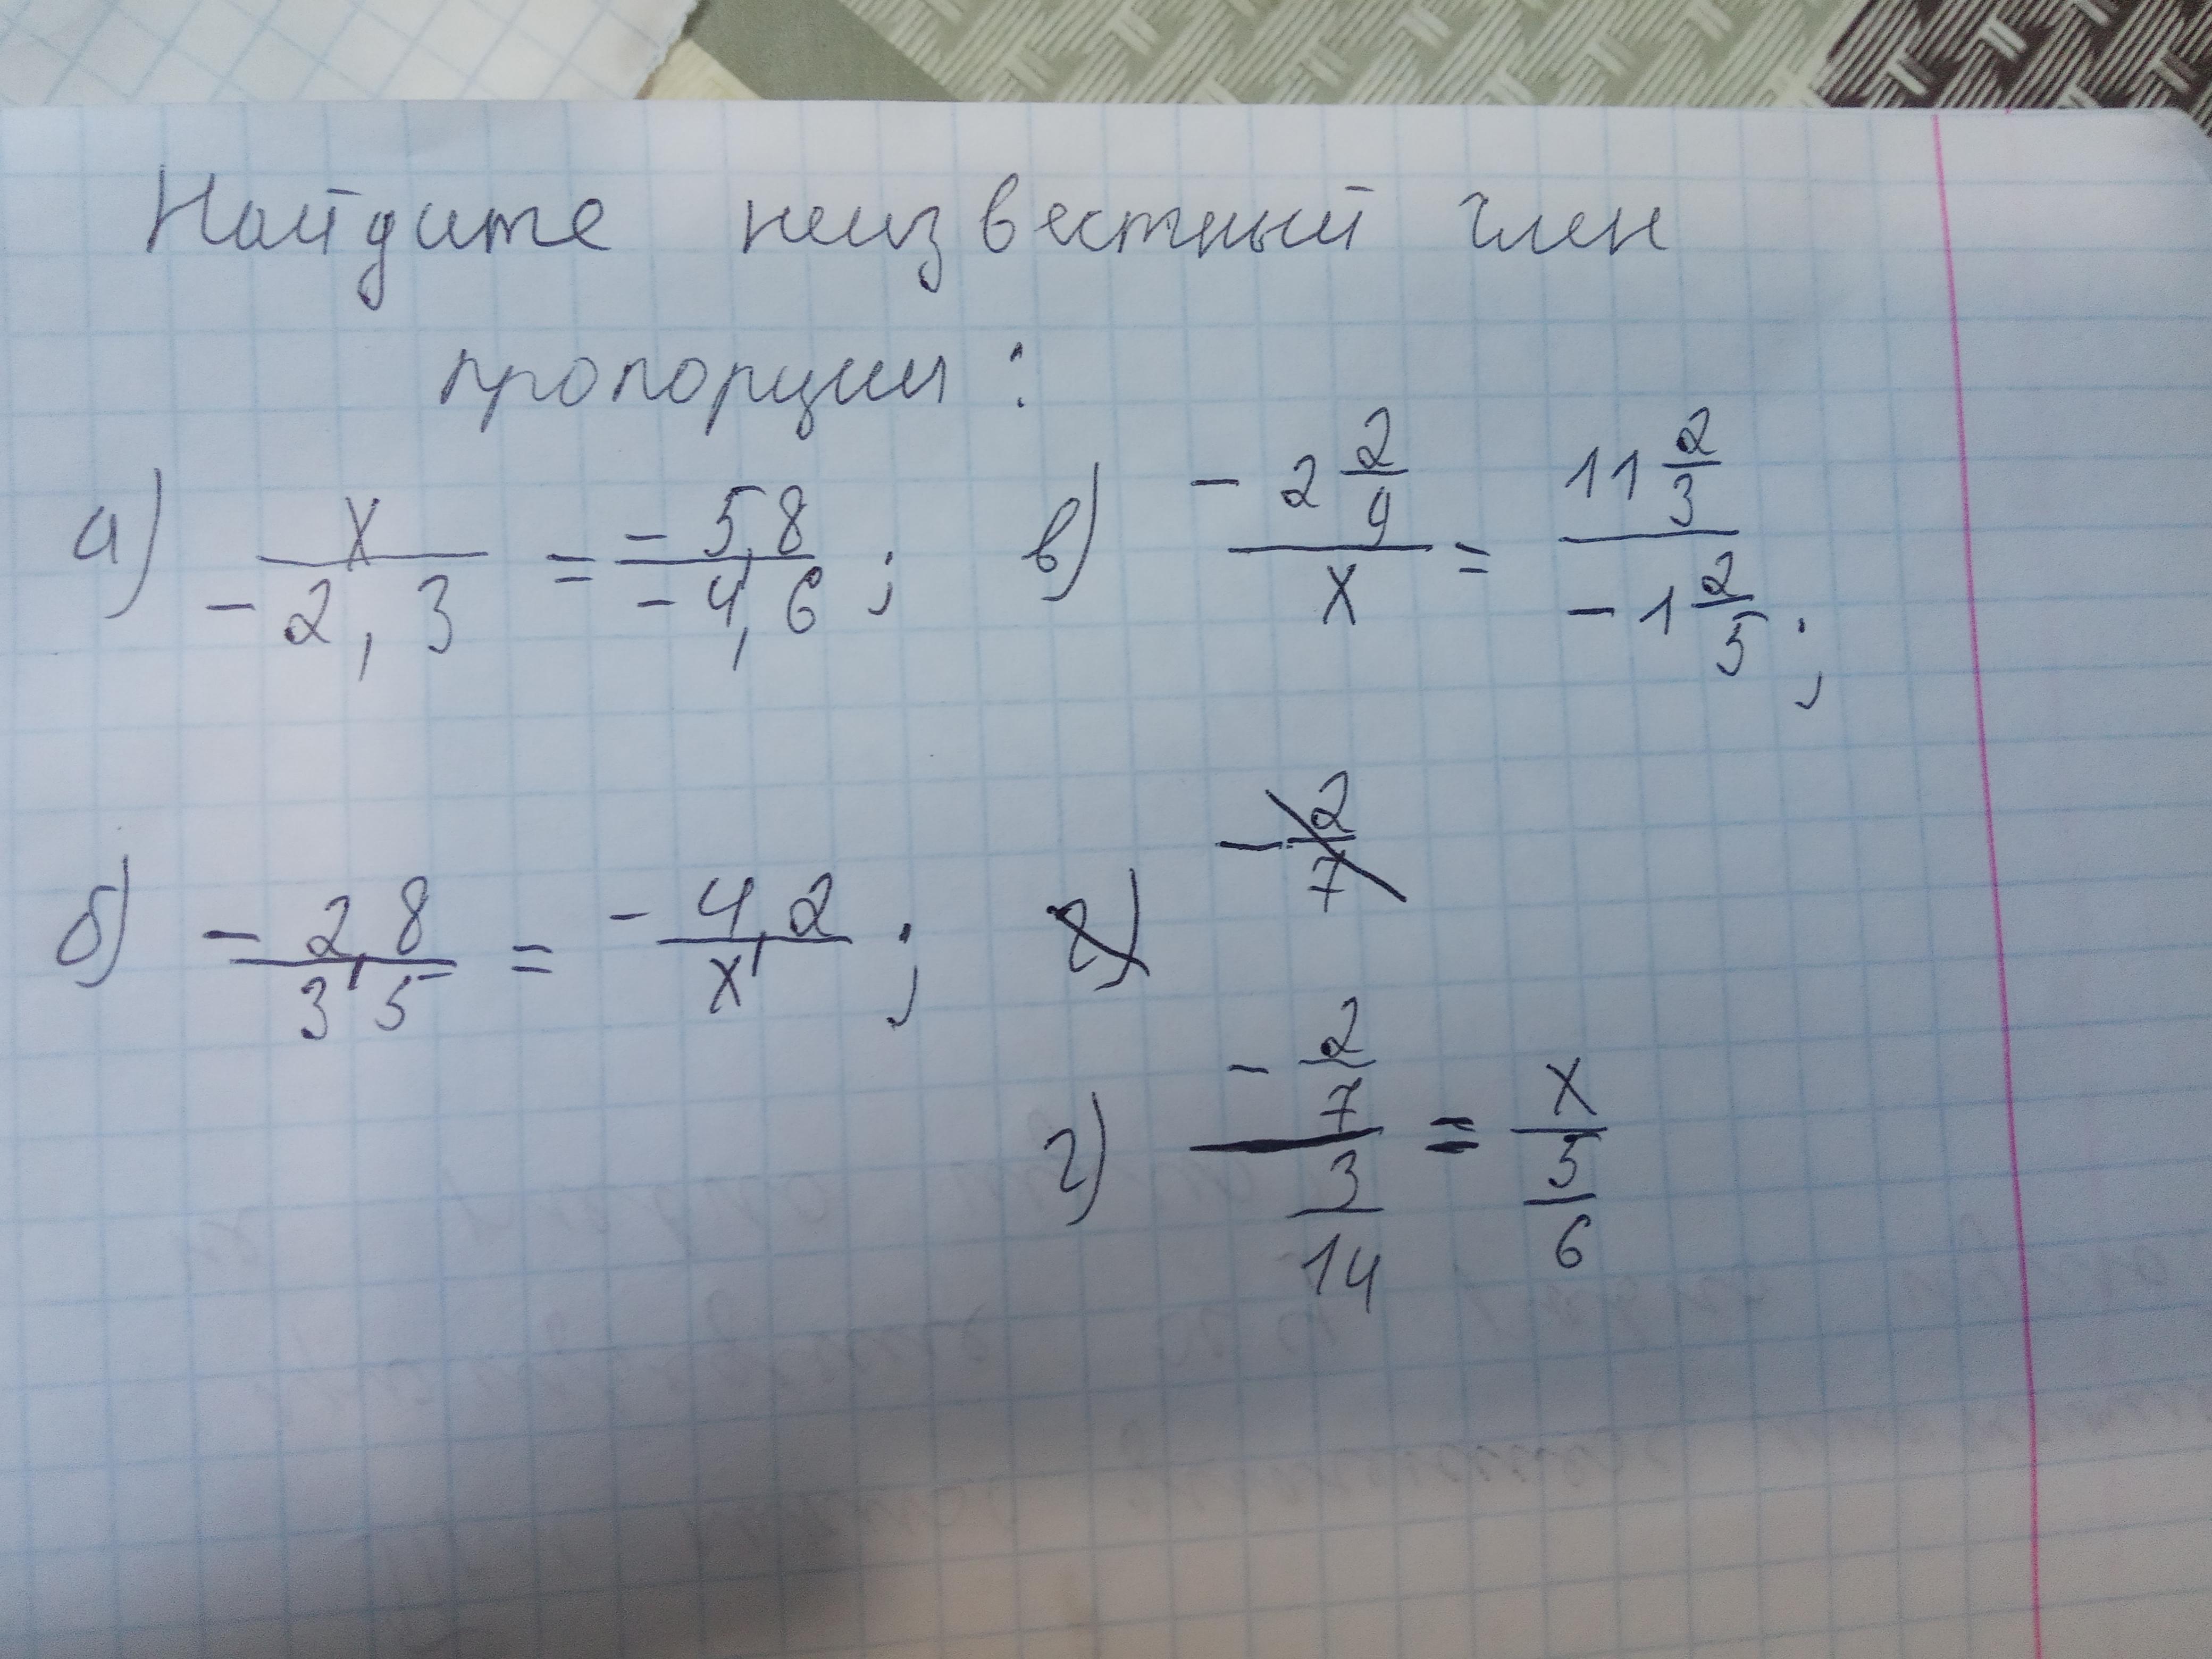 Найдите неизвестный член
пропорции:
а) x/-2,3 = -5,8/-4,6; в) -2 2/9/x = 11 2/3/-1 2/5;
б) -2,8/3,5 = -4,2/x; г) -2/7
г) -2/7/3/14 = x/5/6